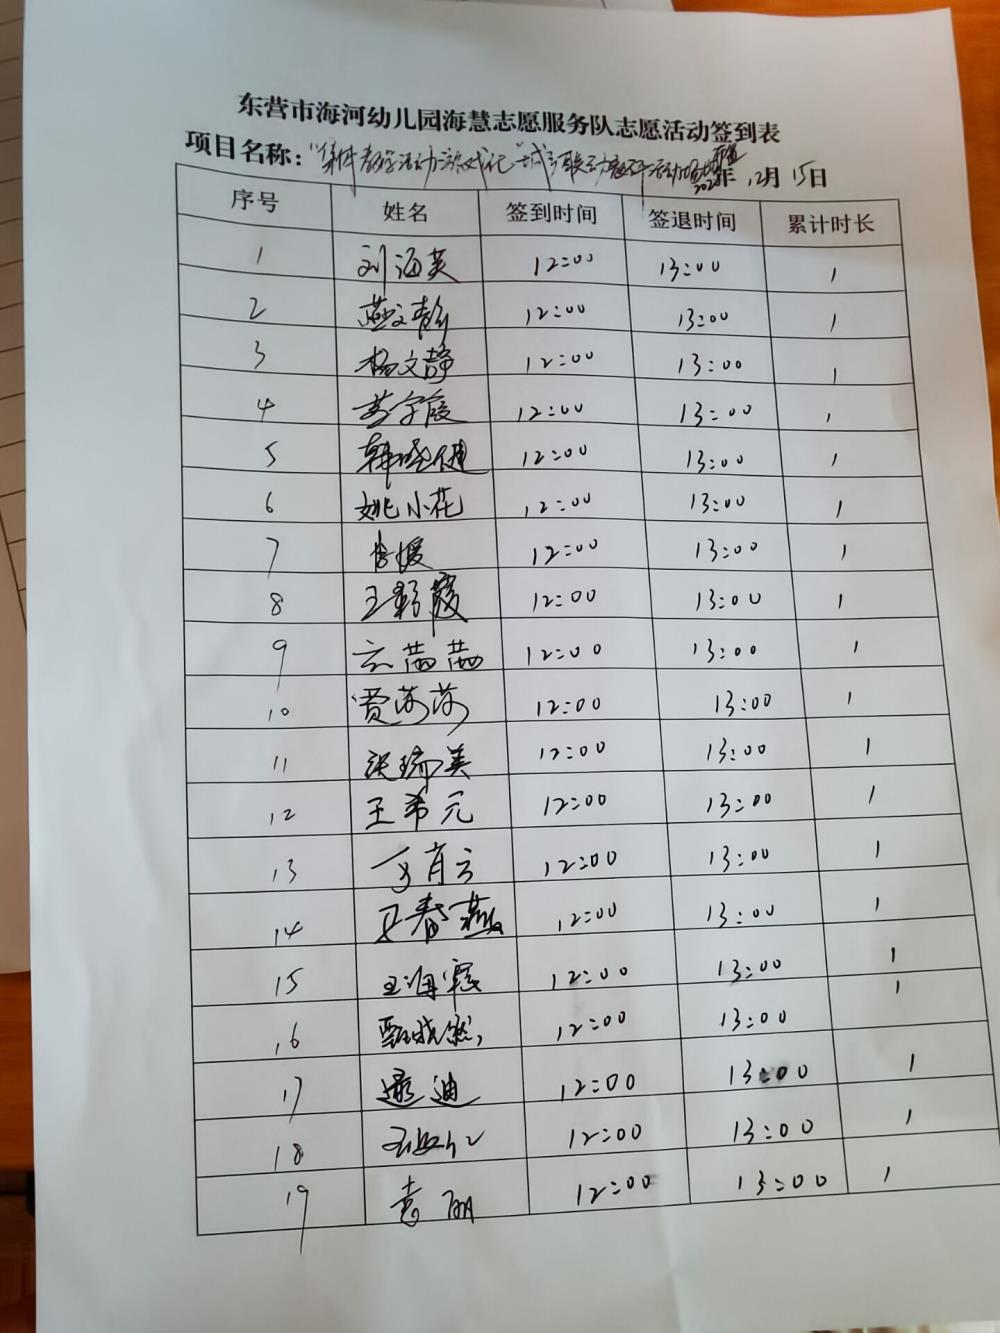 东营市海河幼儿园海慧志愿服务队志愿活动签到表
项目名称：“集体教学活动游戏化”城乡联动教研活动 年12月15日
序号 姓名 签到时间 签退时间 累计时长
1 刘海英 12:00 13:00 1
2 燕文静 12:00 13:00 1
3 杨文静 12:00 13:00 1
4 12:00 13:00 1
5 韩晓健 12:00 13:00 1
6 姚小花 12:00 13:00 1
7 12:00 13:00 1
8 王彩霞 12:00 13:00 1
9 云茜茜 12:00 13:00 1
10 贾莎莎 12:00 13:00 1
11 张瑞美 12:00 13:00 1
12 王希元 12:00 13:00 1
13 12:00 13:00 1
14 王春燕 12:00 13:00 1
15 王海霞 12:00 13:00 1
16 甄晓然 12:00 13:00 1
17 逯迪 12:00 13:00 1
18 12:00 13:00 1
19 袁丽 12:00 13:00 1